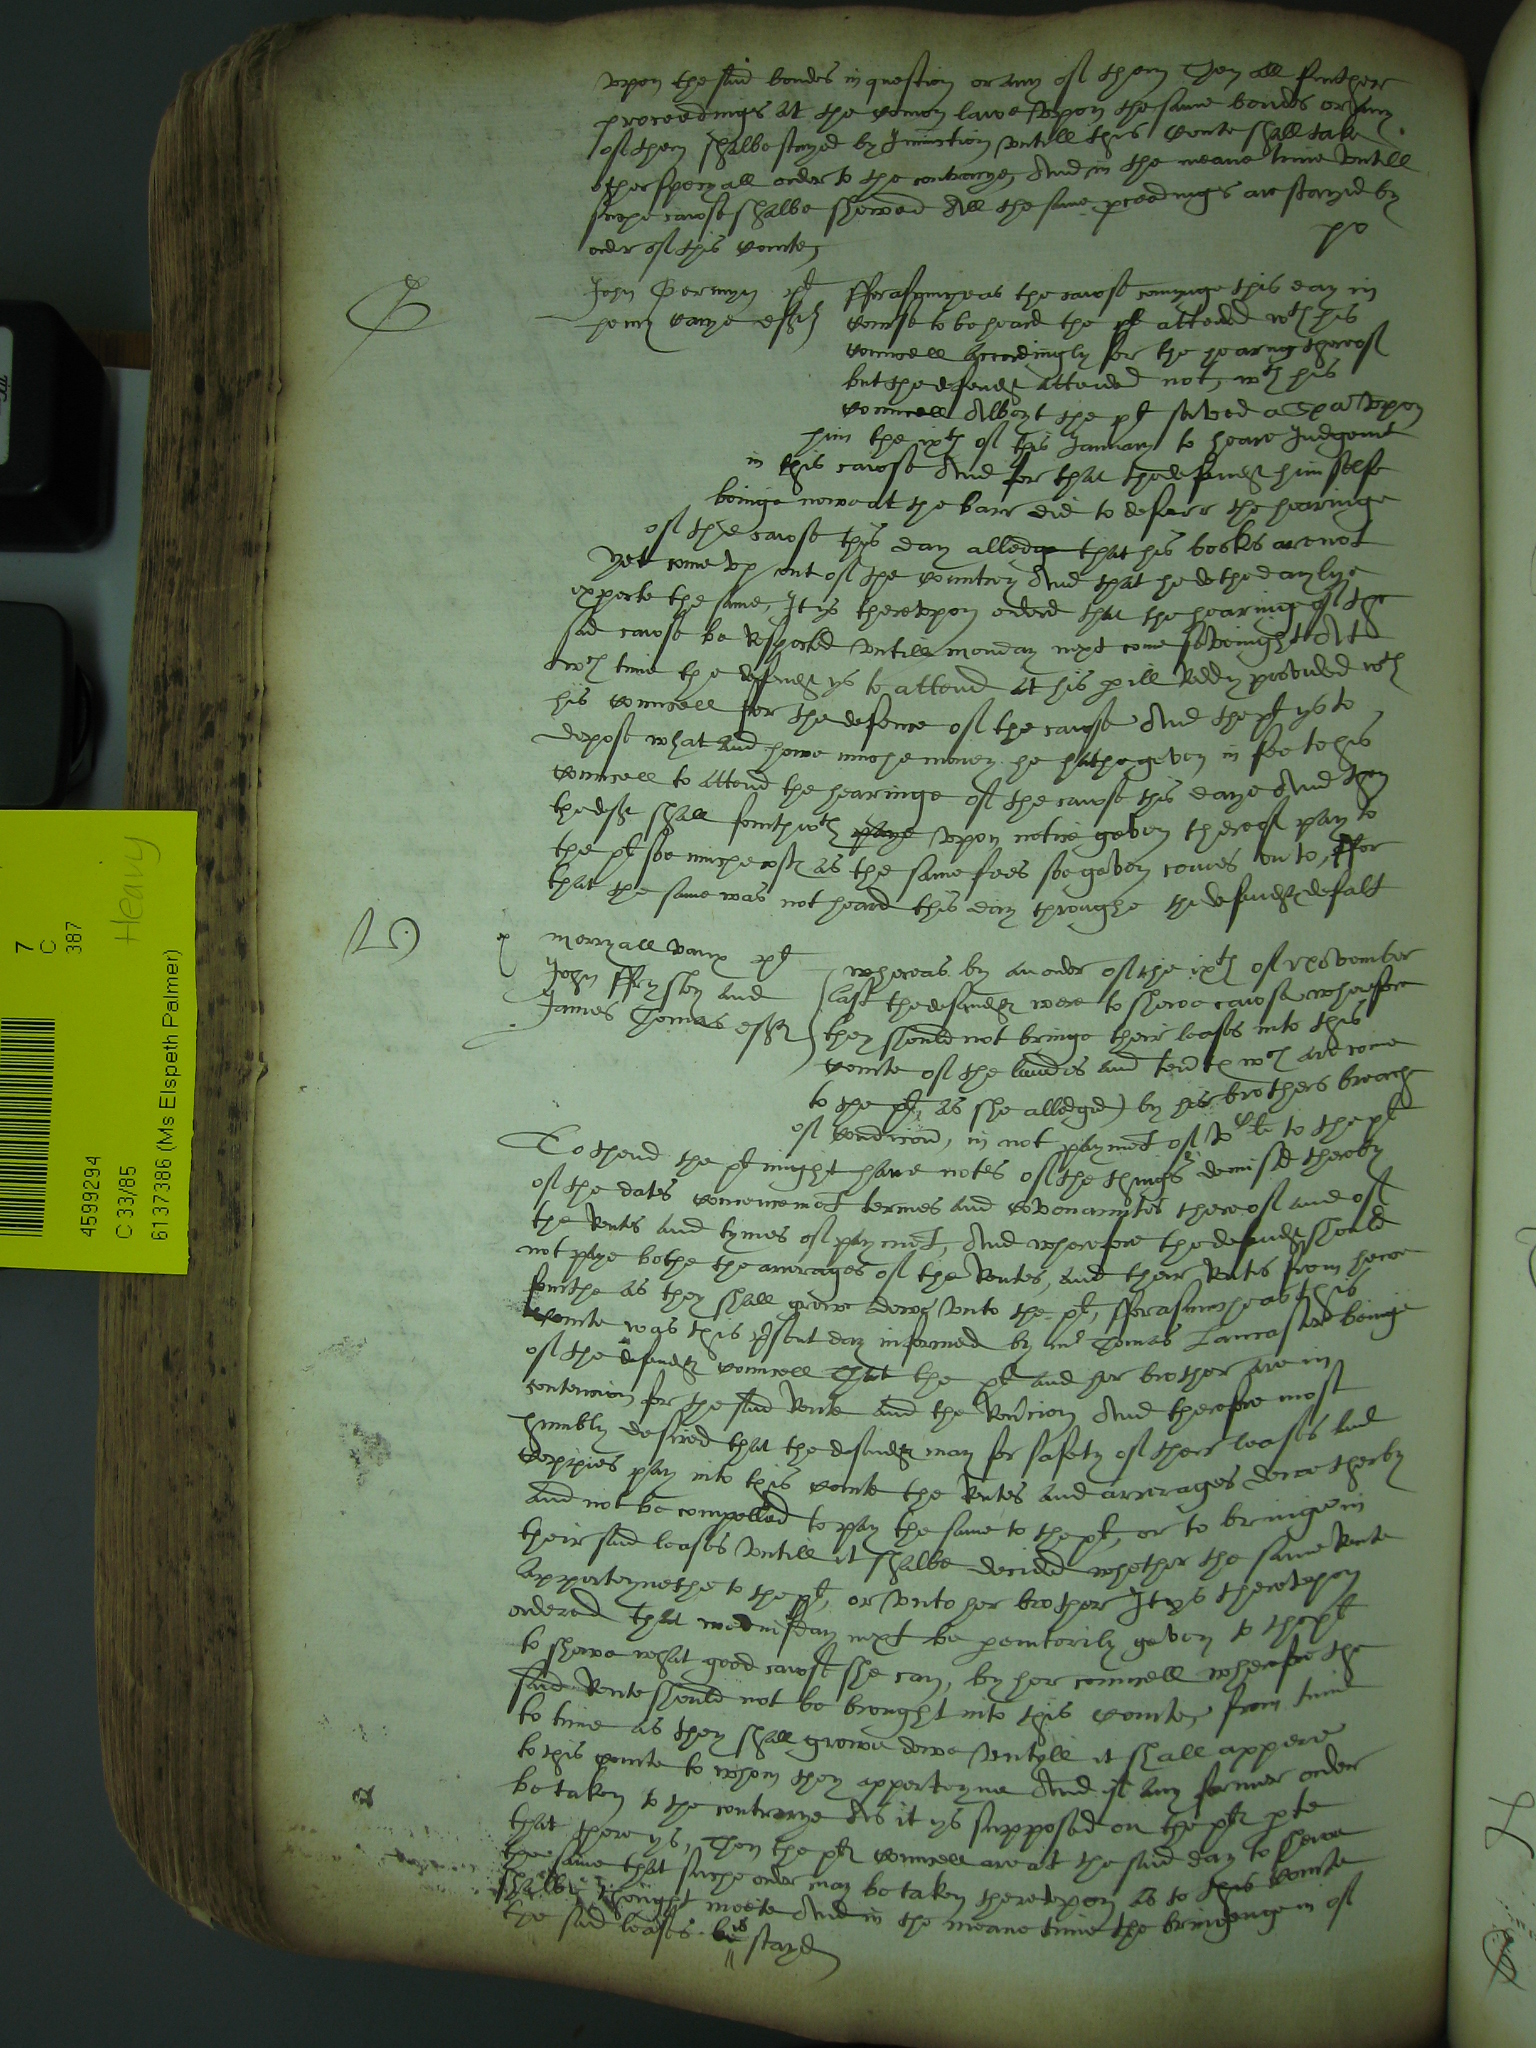 vpon the said bondes in question or any of them Then all further
proceedings at the comon lawe vpon the same bondes or any
of them shalbe stayed by Iniunction vntill this Courte shall take
other specyall order to the contrarye, And in the meane time vntill
suche cawse shalbe shewed All the same proceedings are stayed by
order of this Courte,
John Germyn plt
henry Carye esqr
fforasmuche as the cawse comynge this day in
Course to be heard the plt attended wth his
Councell Accordingly for the hearing thereof
but the defendt attended not, wth his
Councell Albeyt the plt served a vpon
him the ixth of this January to heare Judgemt
in this cawse And for that the defendt himselfe
beinge nowe at the barr did to deferr the hearinge
of the cawse this day alledge that his books are not
yet come vp out of the Countrey And that he dothe daylye
expecte the same, It ys therevpon ordred that the hearinge of the
said cawse be respected vntill monday next come sevenight At
wch time the defendt ys to attend at his perill Reddy provided wth
his Councell for the defence of the cawse And the plt ys to
depose what and howe muche money he hathe geven in fee to his
Councell to attend the hearinge of the cawse this daye And then
the deft shall fourthwth paye vpon notice geven thereof pay to
the plt soe muche costs as the same fees soe geven comes vnto, ffor
that the same was not heard this day throughe the defendts defalt
merryall vaux plt
John ffrysley and
James Tomas
whereas by an order of the ixth of November
last the defendts were to shewe cawse wherefore
they should not bringe their leases into this
Courte of the landes and wch are come
to the plt, as she alledged) by her brothers breache
of Condicion, in not paymt of to the plt
To thend the plt might have notes of the things demised thereby
of the dates Comencemt termes and Covenauntes thereof and of
the Rents and tymes of paymt, And wherefore the defendts should
not paye bothe the arrerages of the Rentes, and their Rents from hence
fourthe as they shall growe dewe vnto the plt, fforasmuche as this
Courte was this psent day informed by mr Tomas Lancaster beinge
of the defendts Councell That the plt and her brother are in
contencion for the said Rente and the Revercion And therefore most
humbly desired that the defendts may for safety of their leases and
Coppies pay into this Courte the Rentes and arrerages dewe therby
and not be compelled to pay the same to the plt, or to bringe in
their said leases vntill it shalbe decided whether the same Rente
apperteynethe to the plt, or vnto her brother It ys therevpon
ordered That wednisday next be peremtorily geven to the plt
to shewe what good cawse she can, by her councell wherefore the
said Rente should not be brought into this Courte, from time
to time as they shall growe dewe vntyll it shall appere
to this Courte to whom they apperteyne And if any former order
be taken to the contrarye As it ys supposed on the plts pte
that there ys, Then the plts Councell are at the said day to shewe
the same that suche order may be taken therevpon as to this Courte
shalbe thought meete And in the meane time the bringenge in of
the said leases is stayd
4599294
C 33/85
6137386 (Ms Elspeth Palmer)
7
C
387
Heavy